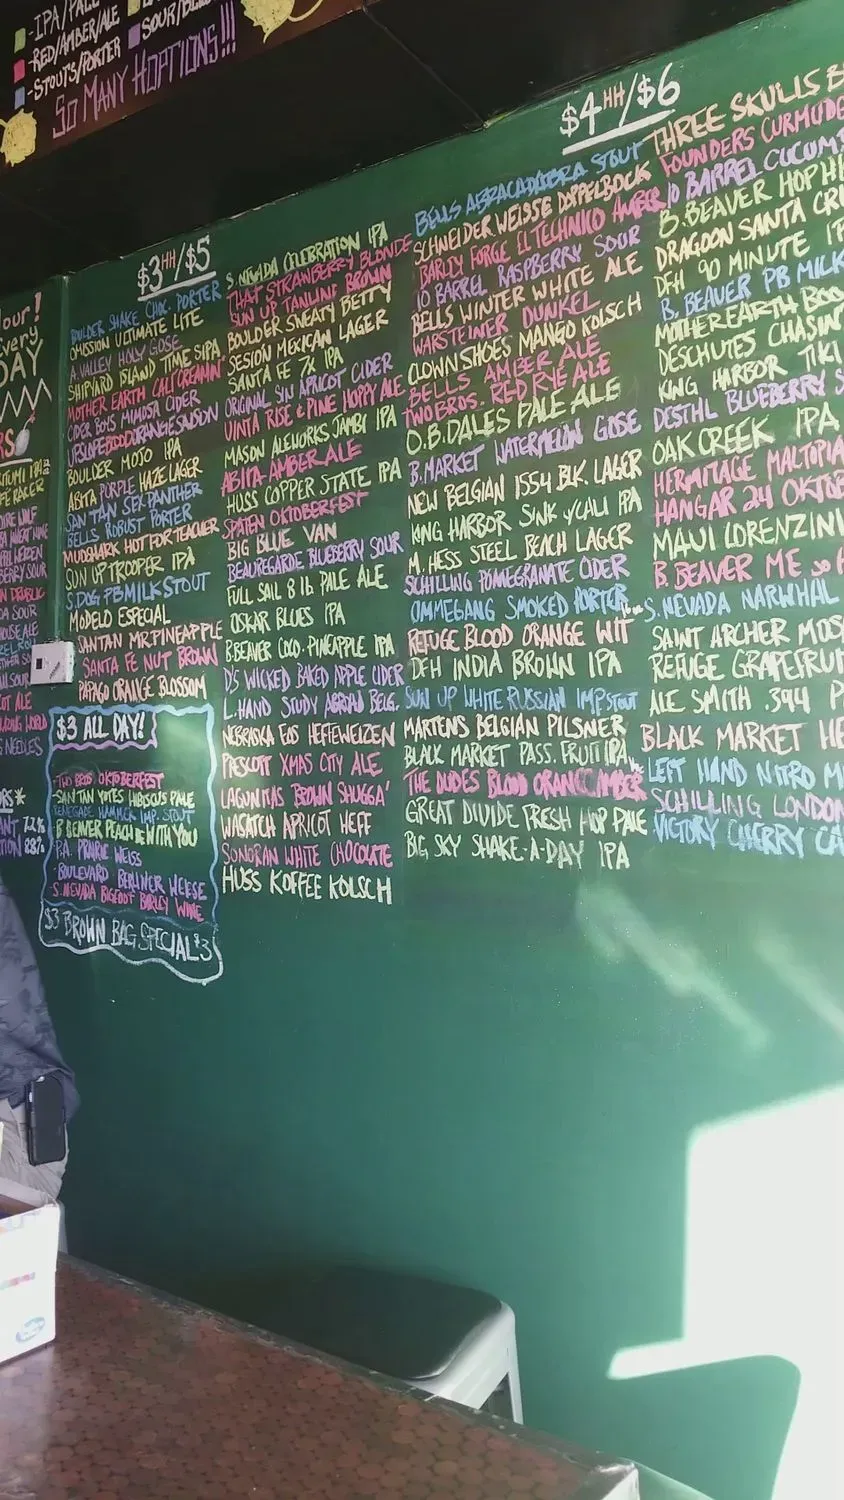 -IPA/PALE
-RED/AMBER/ALE
-STOUTS/PORTER
SOUR/BEL
SO MANY HOPTIONS!!!
our!
every
DAY
$3 HH/$5
BOULDER SHAKE CHOC. PORTER
OMISSION ULTIMATE LITE
A.VALLEY HOLY GOSE
SHIPYARD ISLAND TIME SIPA
MOTHER EARTH CALI CREAMIN'
CIDER BOYS MIMOSA CIDER
UPSLOPE BLOOD ORANGE SAISON
BOULDER MOJO IPA
ABITA PURPLE HAZE LAGER
SAN TAN SEX PANTHER
BELLS ROBUST PORTER
MUDSHARK HOT FOR TEACHER
SUN UP TROOPER IPA
S.DOG PB MILK STOUT
MODELO ESPECIAL
SANTAN MR.PINEAPPLE
SANTA FE NUT BROWN
PAPAGO ORANGE BLOSSOM
$3 ALL DAY!
-TWO BROS OKTOBERFEST
-SAN TAN YOTES HIBISCUS PALE
-RENEGADE HAMMER IMP. STOUT
-B BEAVER PEACH BE WITH YOU
-P.A. PRAIRIE WEISS
-BOULEVARD BERLINER WEESE
-S.NEVADA BIGFOOT BARLEY WINE
$3 BROWN BAG SPECIAL $3
S.NEVADA CELEBRATION IPA
THAT STRAWBERRY BLONDE
SUN UP TANLINE BROWN
BOULDER SWEATY BETTY
SESION MEXICAN LAGER
SANTA FE 7K IPA
ORIGINAL SIN APRICOT CIDER
UINTA RISE & PINE HOPPY ALE
MASON ALEWORKS JAMBI IPA
ABITA AMBER ALE
HUSS COPPER STATE IPA
SPATEN OKTOBERFEST
BIG BLUE VAN
BEAUREGARDE BLUEBERRY SOUR
FULL SAIL 8 lb. PALE ALE
OSKAR BLUES IPA
B.BEAVER COCO. PINEAPPLE IPA
D'S WICKED BAKED APPLE CIDER
L.HAND STUDY ABROAD BELG.
NEBRASKA EOS HEFEWEIZEN
PRESCOTT XMAS CITY ALE
LAGUNITAS BROWN SHUGGA'
WASATCH APRICOT HEFF
SONORAN WHITE CHOCOLATE
HUSS KOFFEE KOLSCH
$4 HH/$6
BELLS ABRACADABRA STOUT
SCHNEIDER WEISSE DOPPELBOCK
BARLEY FORGE EL TECHNIKO AMBER
10 BARREL RASPBERRY SOUR
BELLS WINTER WHITE ALE
WARSTEINER DUNKEL
CLOWN SHOES MANGO KOLSCH
BELLS AMBER ALE
TWO BROS. RED RYE ALE
O.B.DALES PALE ALE
B.MARKET WATERMELON GOSE
NEW BELGIAN 1554 BLK. LAGER
KING HARBOR SINK y/CALI IPA
M. HESS STEEL BEACH LAGER
SCHILLING POMEGRANATE CIDER
OMMEGANG SMOKED PORTER
REFUGE BLOOD ORANGE WIT
DFH INDIA BROWN IPA
SUN UP WHITE RUSSIAN IMP STOUT
MARTENS BELGIAN PILSNER
BLACK MARKET PASS. FRUIT IPA
THE DUDES BLOOD ORANGE AMBER
GREAT DIVIDE FRESH HOP PALE
BIG SKY SHAKE-A-DAY IPA
THREE SKULLS B
FOUNDERS CURMUDE
10 BARREL CUCUM
B.BEAVER HOP H
DRAGOON SANTA CRU
DFH 90 MINUTE IP
B. BEAVER PB MILK
MOTHER EARTH BOO
DESCHUTES CHASIN
KING HARBOR TIKI
DESTHL BLUEBERRY S
OAK CREEK IPA
HERMITAGE MALTOPIA
HANGAR 24 OKTOB
MAUI LORENZINI
B. BEAVER ME SO H
S.NEVADA NARWHAL
SAINT ARCHER MOS
REFUGE GRAPEFRUI
ALE SMITH .394 P
BLACK MARKET HE
LEFT HAND NITRO M
SCHILLING LONDON
VICTORY CHERRY CA